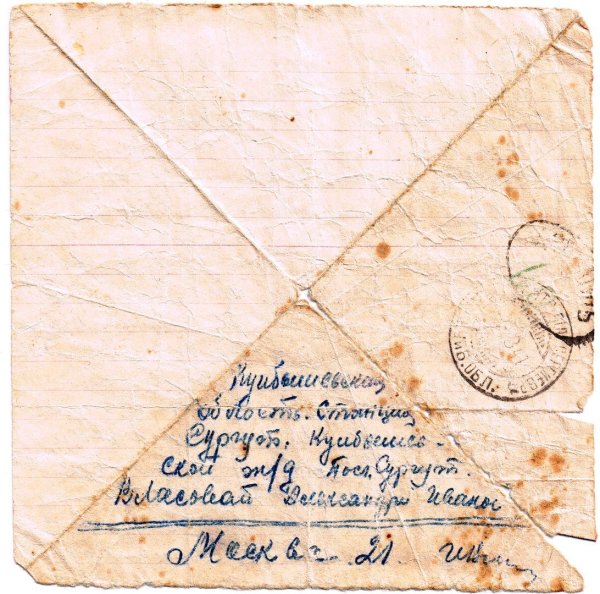 Куйбышевская
область. Станция
Сургут. Куйбышев-
ской ж/д Пос. Сургут.
Власовай Александре Иванов
Москва. 21.